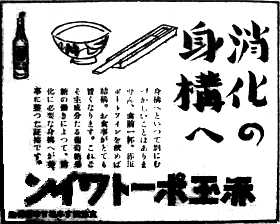 消化の
身構へ
身構へといつて別にむ
づかしいことはありま
せん。食前一杯、赤玉
ポートワインを飲めば
結構。お食事がとても
旨くなります。これこ
そ主成分たる葡萄
糖の働きによつて、消
化に必要な身構へが
事に整つた証拠です。
赤玉ポートワイン